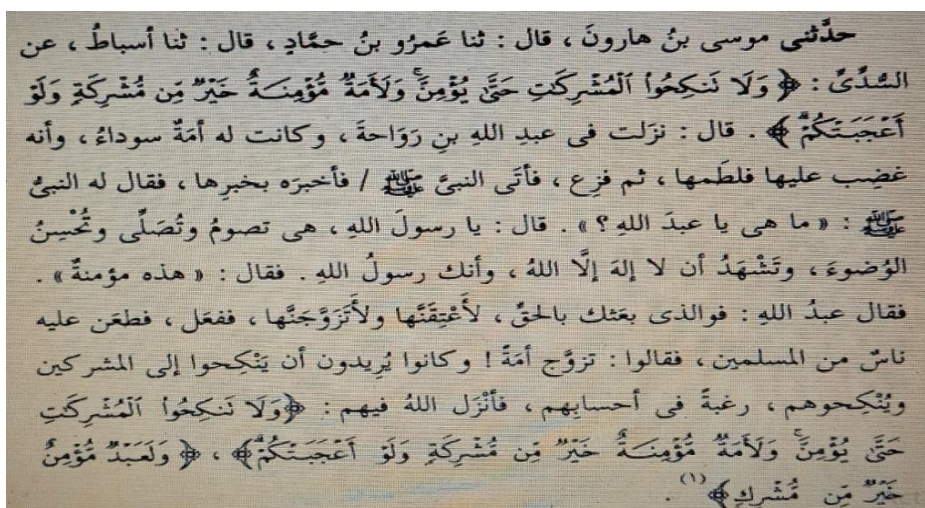 حدَّثنى موسى بنُ هارونَ ، قال : ثنا عَمرُو بنُ حمَّادٍ ، قال : ثنا أسباطُ ، عن
السُّدِّىِّ : ﴿ وَلَا تَنكِحُوا۟ ٱلْمُشْرِكَٰتِ حَتَّىٰ يُؤْمِنَّ ۚ وَلَأَمَةٌ مُّؤْمِنَةٌ خَيْرٌ مِّن مُّشْرِكَةٍ وَلَوْ
أَعْجَبَتْكُمْ ۗ ﴾ . قال : نزَلت فى عبدِ اللهِ بنِ رَوَاحةَ ، وكانت له أمَةٌ سوداءُ ، وأنه
غضِب عليها فلطَمها ، ثم فزِع ، فأتَى النبىَّ ﷺ / فأخبرَه بخبرِها ، فقال له النبىُّ
ﷺ : « ما هى يا عبدَ اللهِ ؟ » . قال : يا رسولَ اللهِ ، هى تصومُ وتُصَلِّى وتُحْسِنُ
الوُضوءَ ، وتَشْهَدُ أن لا إلهَ إلَّا اللهُ ، وأنك رسولُ اللهِ . فقال : « هذه مؤمنةٌ » .
فقال عبدُ اللهِ : فوالذى بعَثك بالحقِّ ، لأُعْتِقَنَّها ولأَتَزَوَّجَنَّها ، ففعَل ، فطعَن عليه
ناسٌ من المسلمين ، فقالوا : تزوَّج أمَةً ! وكانوا يُرِيدون أن يَنْكِحوا إلى المشركين
ويُنْكِحوهم ، رغبةً فى أحسابِهم ، فأنْزَل اللهُ فيهم : ﴿وَلَا تَنكِحُوا۟ ٱلْمُشْرِكَٰتِ
حَتَّىٰ يُؤْمِنَّ ۚ وَلَأَمَةٌ مُّؤْمِنَةٌ خَيْرٌ مِّن مُّشْرِكَةٍ وَلَوْ أَعْجَبَتْكُمْ ۗ﴾ ، ﴿ وَلَعَبْدٌ مُّؤْمِنٌ
خَيْرٌ مِّن مُّشْرِكٍ﴾ (١) .